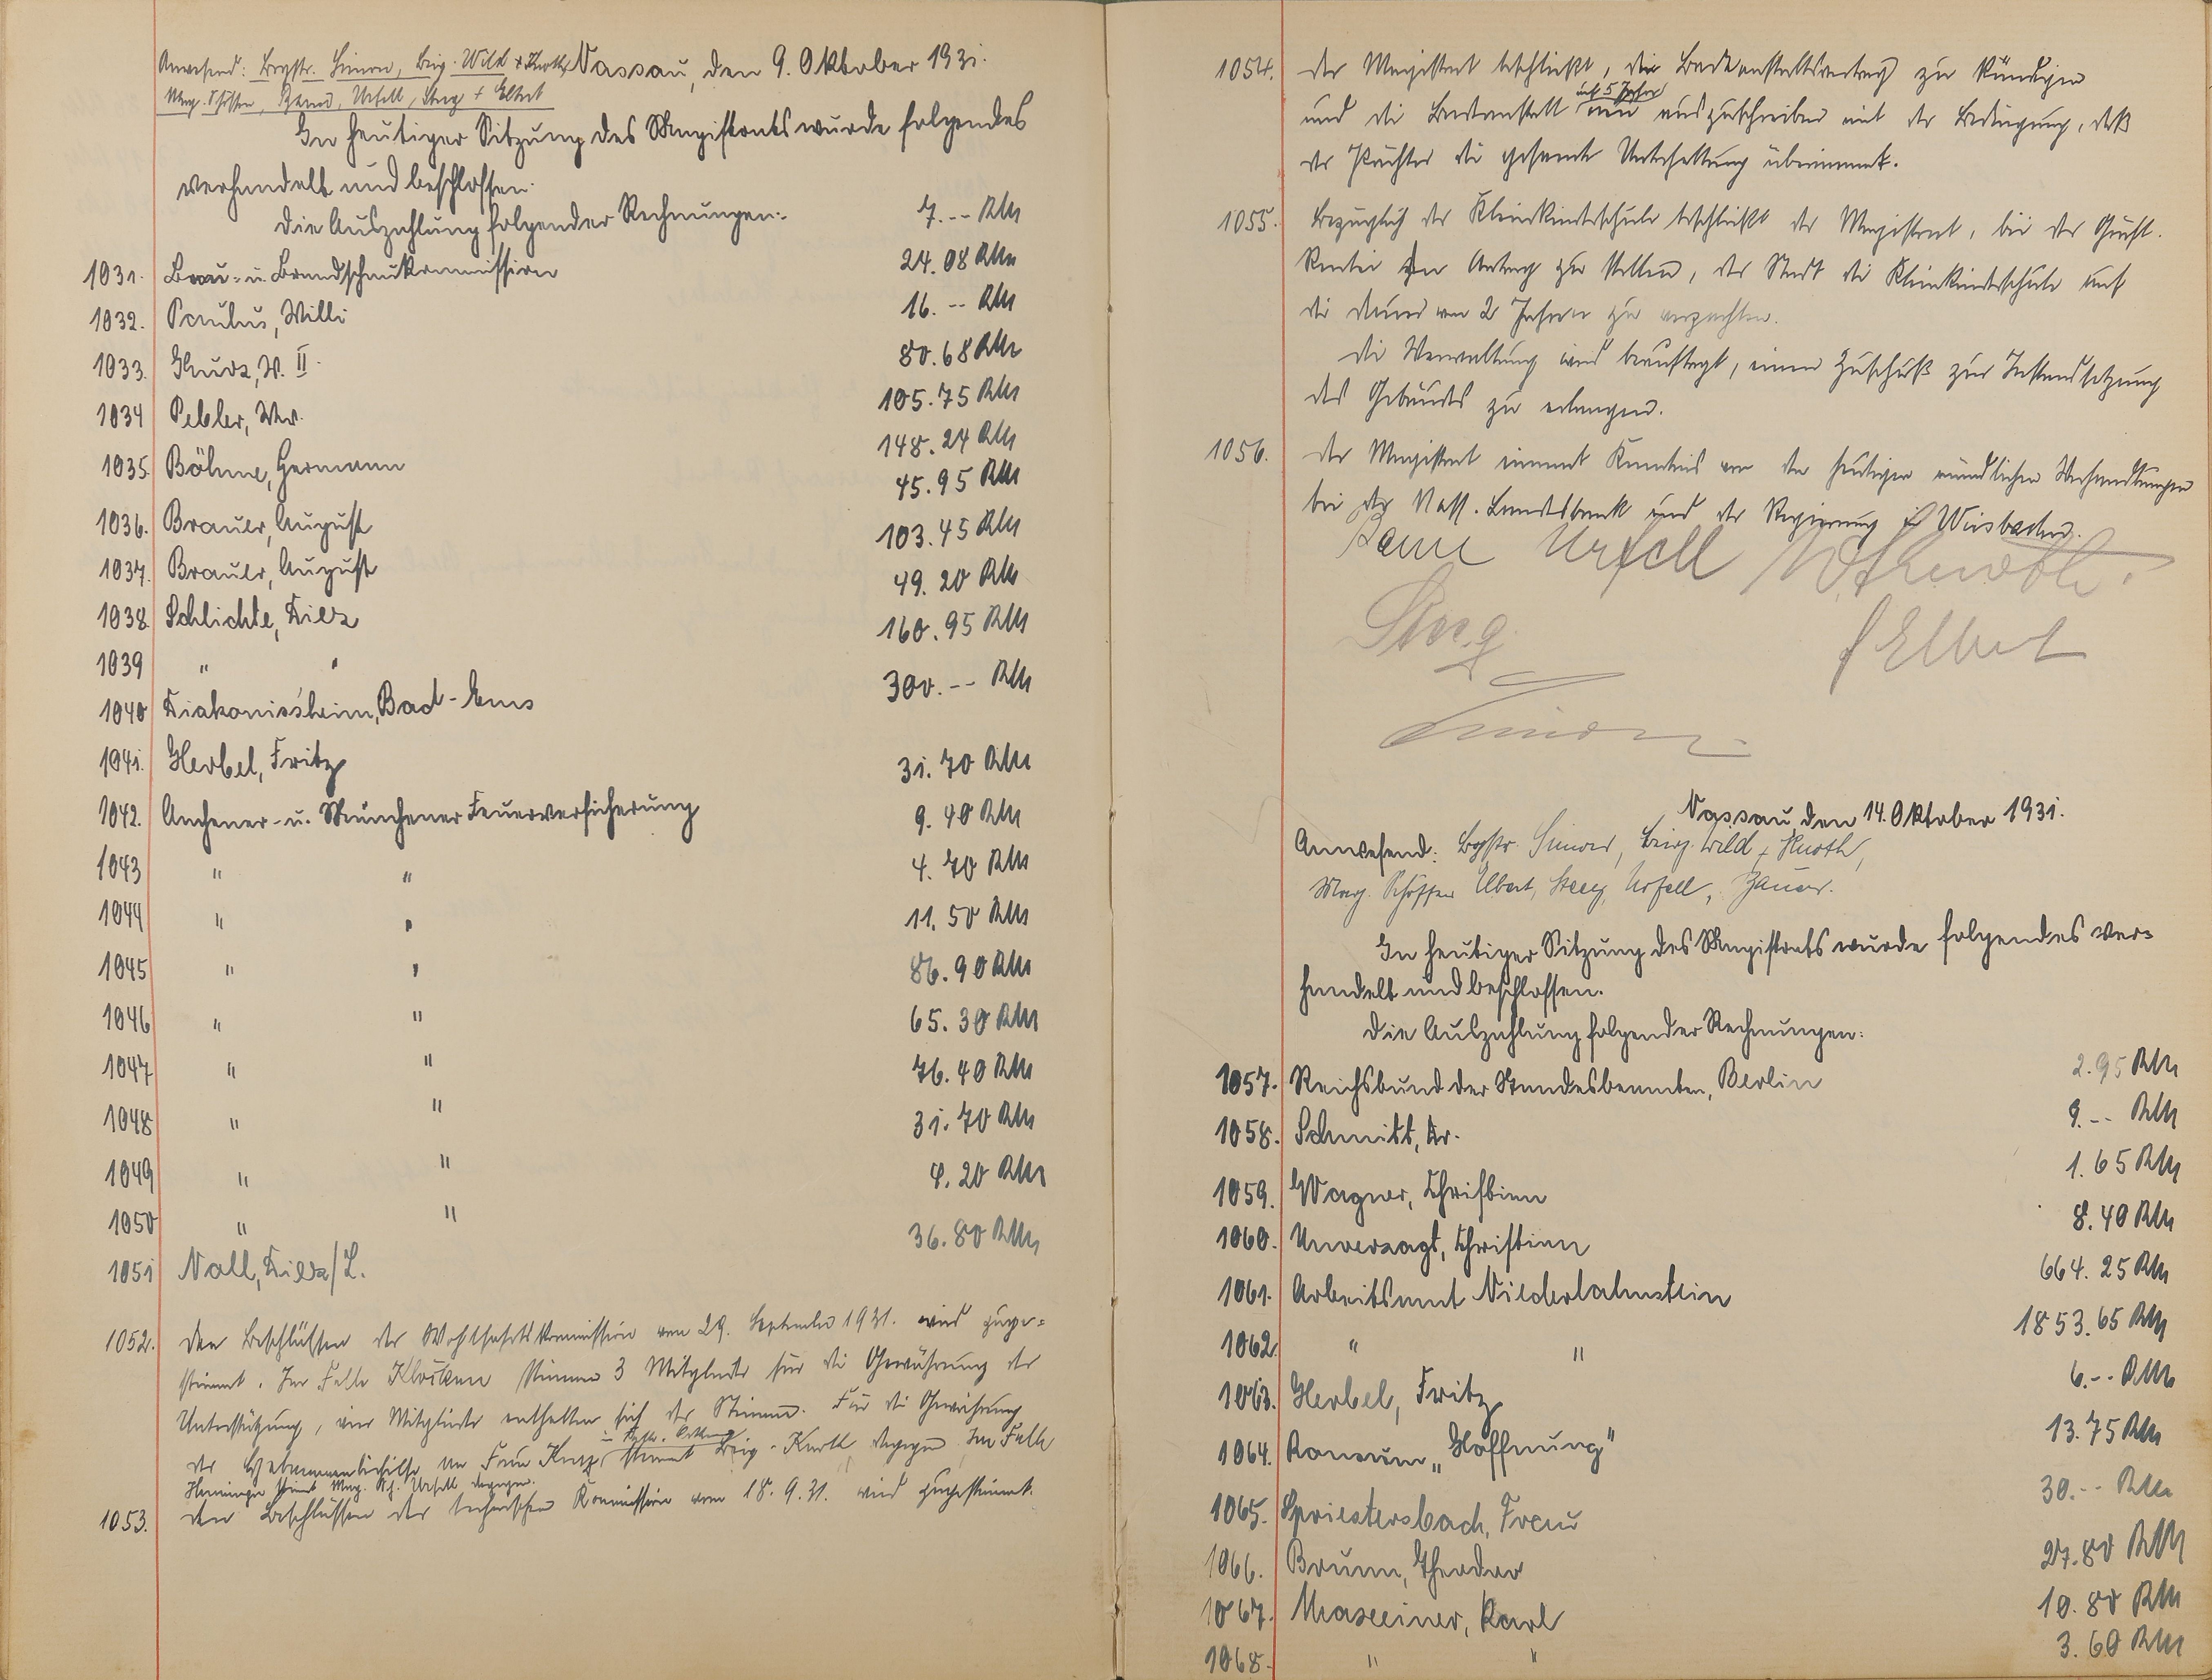 Anwesend: Bgstr. Simon, Beig. Wild + Knoth, Nassau, den 9. Oktober 1931.
Mag. Schöffen, Bauer, Urfell, Steeg + Elbert
In heutiger Sitzung des Magistrats wurde folgendes
verhandelt und beschlossen.
Die Auszahlung folgender Rechnungen:
1031. Bau- u. Brandschaukommission 7.-- RM
1032. Paulus, Willi 24.08 RM
1033. W. II. 16.-- RM
1034 Pebler, Ww. 80.68 RM
1035. Böhme, Hermann 105.75 RM
1036. Bräuer, August 148.24 RM
1037. Bräuer, August 45.95 RM
1038. Schlichte, Diez 103.45 RM
1039 " " 49.20 RM
1040 Diakonissheim, Bad-Ems 160.95 RM
1041. Herbel, Fritz 300.-- RM
1042. Aachener- u. Münchener Feuerversicherung 31.70 RM
1043 " " 9.40 RM
1044 " " 4.70 RM
1045 " " 11.50 RM
1046 " " 86.90 RM
1047 " " 65.30 RM
1048 " " 76.40 RM
1049 " " 31.70 RM
1050 " " 4.20 RM
1051 Noll, Diez/L. 36.80 RM
1052. Den Beschlüssen der Wohlfahrtskommission vom 29. September 1931. wird zuge-
stimmt. Im Falle stimmen 3 Mitglieder für die Gewährung der
Unterstützung, vier Mitglieder enthalten sich der Stimme. Für die Gewährung
der Hebammenbeihilfe an Frau stimmt Beig. Knoth dagegen. Im Falle
stimmt Mag. Sch. Urfell dagegen.
1053. Den Beschlüssen der technischen Kommission vom 18.9.31. wird zugestimmt.
1054. Der Magistrat beschließt, den Badeanstaltsvertrag zu kündigen
auf 5 Jahre
und die Badeanstalt neu auszuschreiben mit der Bedingung, daß
der Pächter die gesamte Unterhaltung übernimmt.
1055. Bezüglich der Kleinkinderschule beschließt der Magistrat, bei der Gräfl.
Rentei den Antrag zu stellen, der Stadt die Kleinkinderschule auf
die Dauer von 2 Jahren zu verpachten.
Die Verwaltung wird beauftragt, einen Zuschuß zur Instandsetzung
des Gebäudes zu erlangen.
1056. Der Magistrat nimmt Kenntnis von den heutigen mündlichen Verhandlungen
bei der Nass. Landesbank und der Regierung in Wiesbaden.
Bauer Urfell W. Knoth.
Steeg Elbert
Simon
Nassau, den 14. Oktober 1931.
Anwesend: Bgstr. Simon, Beig. Wild + Knoth,
Mag. Schöffen Elbert, Steeg, Urfell, Bauer.
In heutiger Sitzung des Magistrats wurde folgendes ver-
handelt und beschlossen.
Die Auszahlung folgender Rechnungen:
1057. Reichsbund der Standesbeamten, Berlin 2.95 RM
1058. Schmidt, Dr. 9.-- RM
1059. Wagner, Christian 1.65 RM
1060. Unverzagt, Christian 8.40 RM
1061. Arbeitsamt Niederlahnstein 664.25 RM
1062. " " 1853.65 RM
1063. Herbel, Fritz 6.-- RM
1064. Konsum „Hoffnung" 13.75 RM
1065. Spriestersbach, Frau 30.-- RM
1066. Braun, Theodor 27.80 RM
1067. Karl 10.80 RM
1068. " " 3.60 RM